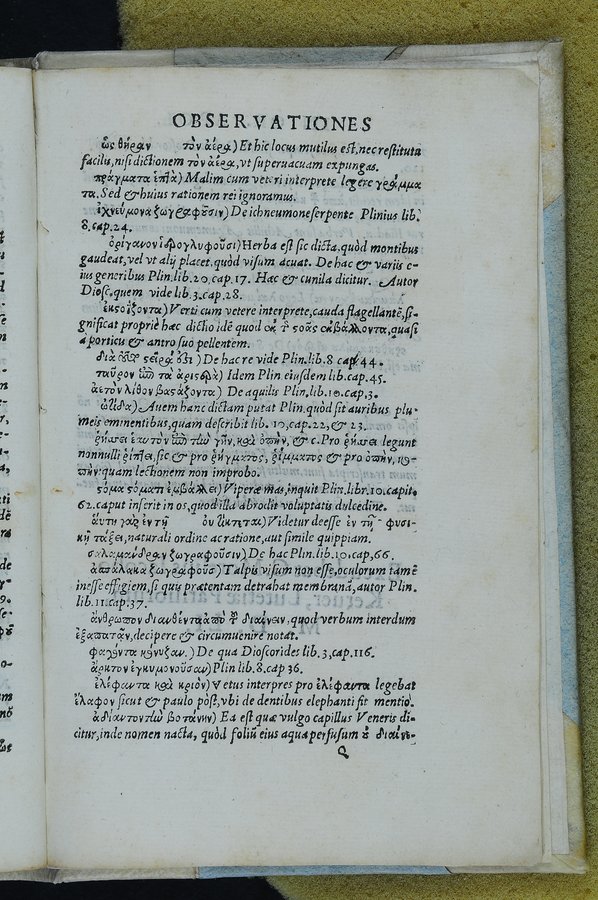 OBSERVATIONES
ὡς θήραν τὸν ἀέρα) Et hic locus mutilus est, nec restituta
facilis, nisi dictionem τὸν ἀέρα, vt superuacuam expungas.
πράγματα ἑπτὰ) Malim cum veteri interprete legere γράμμα
τα. Sed & huius rationem rei ignoramus.
ἰχνεύμονα ζωγραφοῦσιν) De ichneumone serpente Plinius lib.
8. cap. 24.
ὀρίγανον ἱερογλυφοῦσι) Herba est sic dicta, quòd montibus
gaudeat, vel vt alij placet, quòd visum acuat. De hac & variis e-
ius generibus Plin. lib. 20. cap. 17. Hac & cunila dicitur. Autor
Diosc. quem vide lib. 3. cap. 28.
Verti cum vetere interprete, cauda flagellantē, si-
gnificat propriè hac dictio idē quod ἐκ τ σοᾶς ἐκβάλλοντα, quasi
a porticu & antro suo pellentem.
De hac re vide Plin. lib. 8 cap. 44.
ταῦρον) Idem Plin eiusdem lib. cap. 45.
ἀετὸν λίθον βαςάζοντα) De aquilis Plin. lib. 10. cap. 3.
ὠτίδα) Auem hanc dictam putat Plin. quòd sit auribus plu-
meis eminentibus, quam describit lib. 10, cap. 22, & 23.
ῥήσσει ἑαυτὸν εἰς τὴν γῆν, καὶ ὀπὴν, & c. Pro ῥήσσει legunt
nonnulli ῥίπτει, sic & pro ῥήγματος, ῥίμματος & pro ὀπὴν, κο-
πὴν: quam lectionem non improbo.
ςόμα ςόματι ἐμβάλλει) Viperæ mas, inquit Plin. libr. 10. capit.
62. caput inserit in os, quod illa abrodit voluptatis dulcedine.
αὕτη γὰρ ἐν τῇ οὐ τίκτεται) Videtur deesse ἐν τῇ φυσι-
κῇ τάξει, naturali ordine ac ratione, aut simile quippiam.
σαλαμάνδραν ζωγραφοῦσιν) De hac Plin. lib. 10. cap, 66.
ἀσπάλακα ζωγραφοῦσ) Talpis visum non esse, oculorum tamē
inesse effigiem, si quis prætentam detrahat membranā, autor Plin.
lib. 11. cap. 37.
ἄνθρωπον διανθέντα ἀπὸ τ διαίνειν, quod verbum interdum
ἐξαπατᾷν, decipere & circumuenire notat.
De qua Dioscorides lib. 3, cap. 116.
ἄρκτον ἐγκυμονοῦσαν) Plin lib. 8. cap 36.
ἐλέφαντα καὶ κριὸν) Vetus interpres pro ἐλέφαντα legebat
ἔλαφον sicut & paulo pòst, vbi de dentibus elephanti fit mentio.
ἀδίαντον τὴν βοτάνην) Ea est quæ vulgo capillus Veneris di-
citur, inde nomen nacta, quòd foliū eius aqua perfusum ȣ διαίνε-
Q